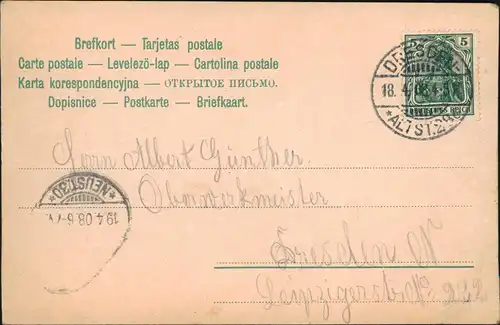 Brefkort — Tarjetas postale
Carte postale — Levelezö-lap — Cartolina postale
Karta korespondencyjna — ОТКРЫТОЕ ПИСЬМО.
Dopisnice — Postkarte — Briefkaart.
5
DRESDEN-
18. 4. 08. 4-5 N.
*ALTST. 29
REICH
Herrn Albert Günther.
Oberwerkmeister
*NEUST. 30*
19.4.08. 6-7 V.
Dresden N
Leipzigerstr. No 222